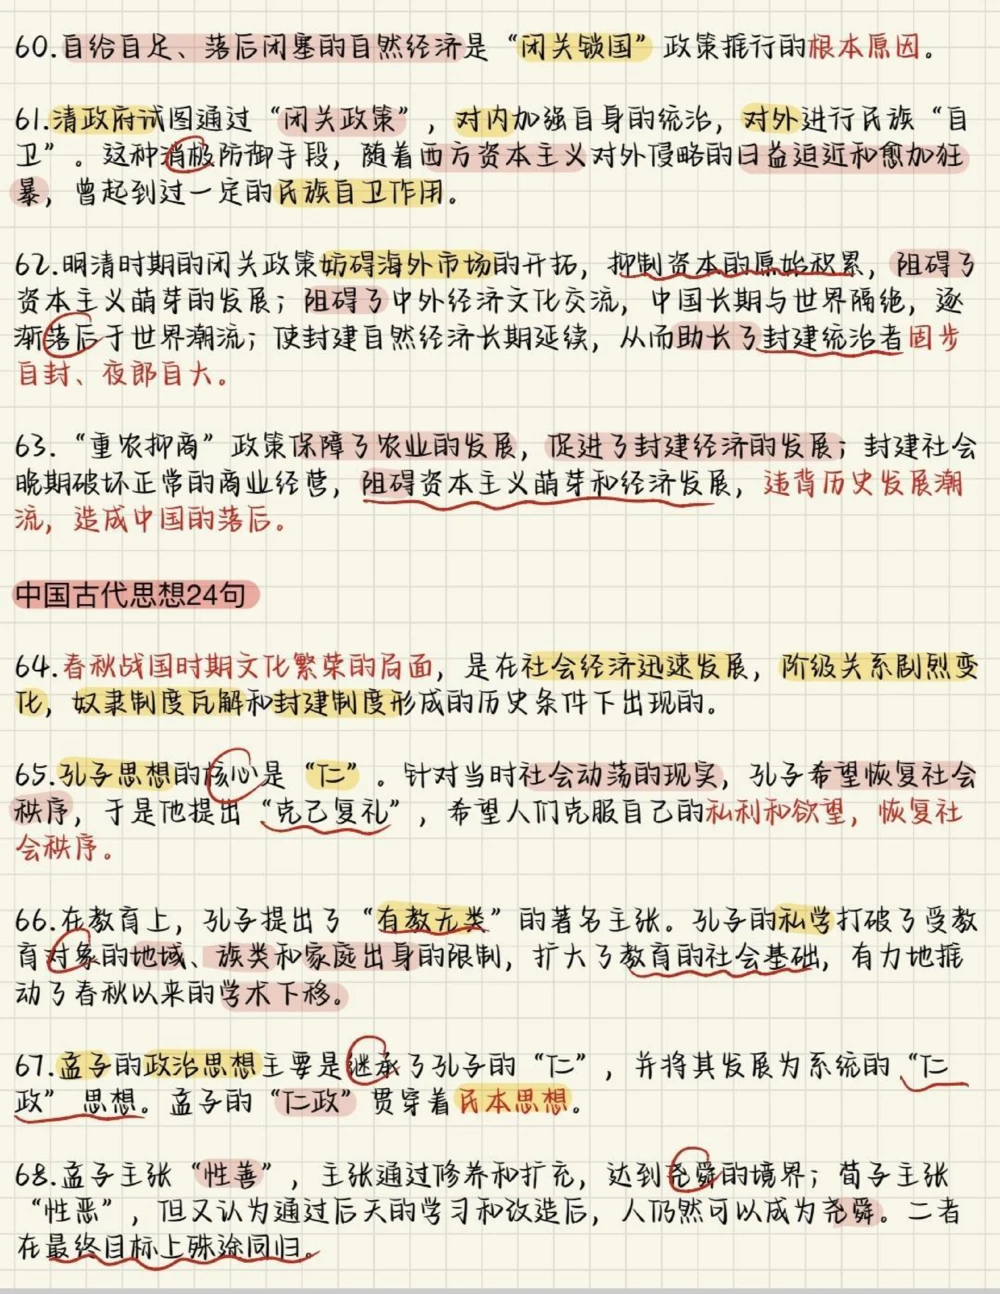 60.自给自足、落后闭塞的自然经济是“闭关锁国”政策推行的根本原因。
61.清政府试图通过“闭关政策”，对内加强自身的统治，对外进行民族“自
卫”。这种消极防御手段，随着西方资本主义对外侵略的日益迫近和愈加狂
暴，曾起到过一定的民族自卫作用。
62.明清时期的闭关政策妨碍海外市场的开拓，抑制资本的原始积累，阻碍了
资本主义萌芽的发展；阻碍了中外经济文化交流，中国长期与世界隔绝，逐
渐落后于世界潮流；使封建自然经济长期延续，从而助长了封建统治者固步
自封、夜郎自大。
63.“重农抑商”政策保障了农业的发展，促进了封建经济的发展；封建社会
晚期破坏正常的商业经营，阻碍资本主义萌芽和经济发展，违背历史发展潮
流，造成中国的落后。
中国古代思想24句
64.春秋战国时期文化繁荣的局面，是在社会经济迅速发展，阶级关系剧烈变
化，奴隶制度瓦解和封建制度形成的历史条件下出现的。
65.孔子思想的核心是“仁”。针对当时社会动荡的现实，孔子希望恢复社会
秩序，于是他提出“克己复礼”，希望人们克服自己的私利和欲望，恢复社
会秩序。
66.在教育上，孔子提出了“有教无类”的著名主张。孔子的私学打破了受教
育对象的地域、族类和家庭出身的限制，扩大了教育的社会基础，有力地推
动了春秋以来的学术下移。
67.孟子的政治思想主要是继承了孔子的“仁”，并将其发展为系统的“仁
政”思想。孟子的“仁政”贯穿着民本思想。
68.孟子主张“性善”，主张通过修养和扩充，达到尧舜的境界；荀子主张
“性恶”，但又认为通过后天的学习和改造后，人仍然可以成为尧舜。二者
在最终目标上殊途同归。